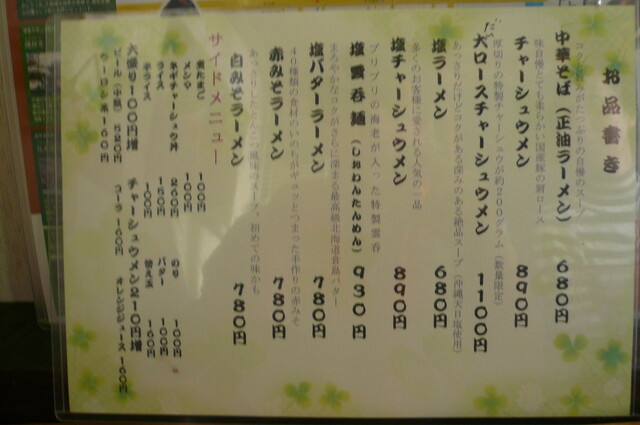 お品書き
コクと旨みがたっぷりの自慢のスープ
中華そば(正油ラーメン) 680円
味自慢とても柔らかい国産豚の肩ロース
チャーシュウメン 890円
厚切りの特製チャーシュウが約200グラム(数量限定)
大ロースチャーシュウメン 1100円
あっさりだけどコクがある深みのある絶品スープ(沖縄天日塩使用)
塩ラーメン 680円
多くのお客様に愛される人気の一品
塩チャーシュウメン 890円
プリプリの海老が入った特製雲呑
塩雲呑麺(しおわんたんめん) 930円
まろやかなコクがさらに深まる最高級北海道倉島バター
塩バターラーメン 780円
40種類の食材のうのちがギュッとつまった手作りの赤みそ
赤みそラーメン 780円
あっさりしたとんこつ風味のスープ。初めての味かも
白みそラーメン 780円
サイドメニュー
煮たまご 100円
メンマ 100円
ネギチャーシュウ丼 260円
ライス 150円
半ライス 100円
のり 100円
バター 100円
替え玉 160円
大盛り100円増 チャーシュウメン210円増
ビール(中瓶) 520円 コーラ 160円 オレンジジュース 160円
ウーロン茶 160円